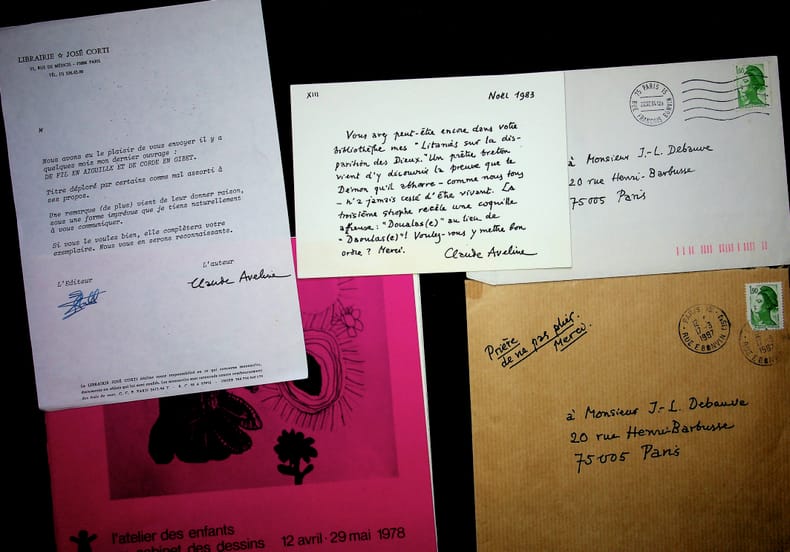 LIBRAIRIE ☆ JOSÉ CORTI
11, RUE DE MÉDICIS - 75006 PARIS
M
Nous avons eu le plaisir de vous envoyer il y a
quelques mois mon dernier ouvrage :
DE FIL EN AIGUILLE ET DE CORDE EN GIBET.
Titre déploré par certains comme mal assorti à
ses propos.
Une remarque (de plus) vient de leur donner raison,
sous une forme imprévue que je tiens naturellement
à vous communiquer.
Si vous le voulez bien, elle complètera votre
exemplaire. Nous vous en serons reconnaissants.
L'Editeur
L'auteur
Claude Aveline
XIII
Noël 1983
Vous avez peut-être encore dans votre
bibliothèque mes "Litanies sur la dis-
parition des Dieux." Un prêtre breton
vient d'y découvrir la preuve que le
Démon qu'il abhorre - comme nous tous
- n'a jamais cessé d'être vivant. La
troisième strophe recèle une coquille
affreuse : "Doualas(e)" au lieu de
"Daoulas(e)"! Voulez-vous y mettre bon
ordre ? Merci.
Claude Aveline
75 PARIS 15
à Monsieur J.-L. Debauve
20 rue Henri-Barbusse
75005 Paris
PARIS 15
12-3
1987
RUE F. BONVIN
1,90
Prière
de ne pas plier.
Merci.
à Monsieur J.-L. Debauve
20 rue Henri-Barbusse
75005 Paris
l'atelier des enfants
cabinet des dessins
12 avril - 29 mai 1978